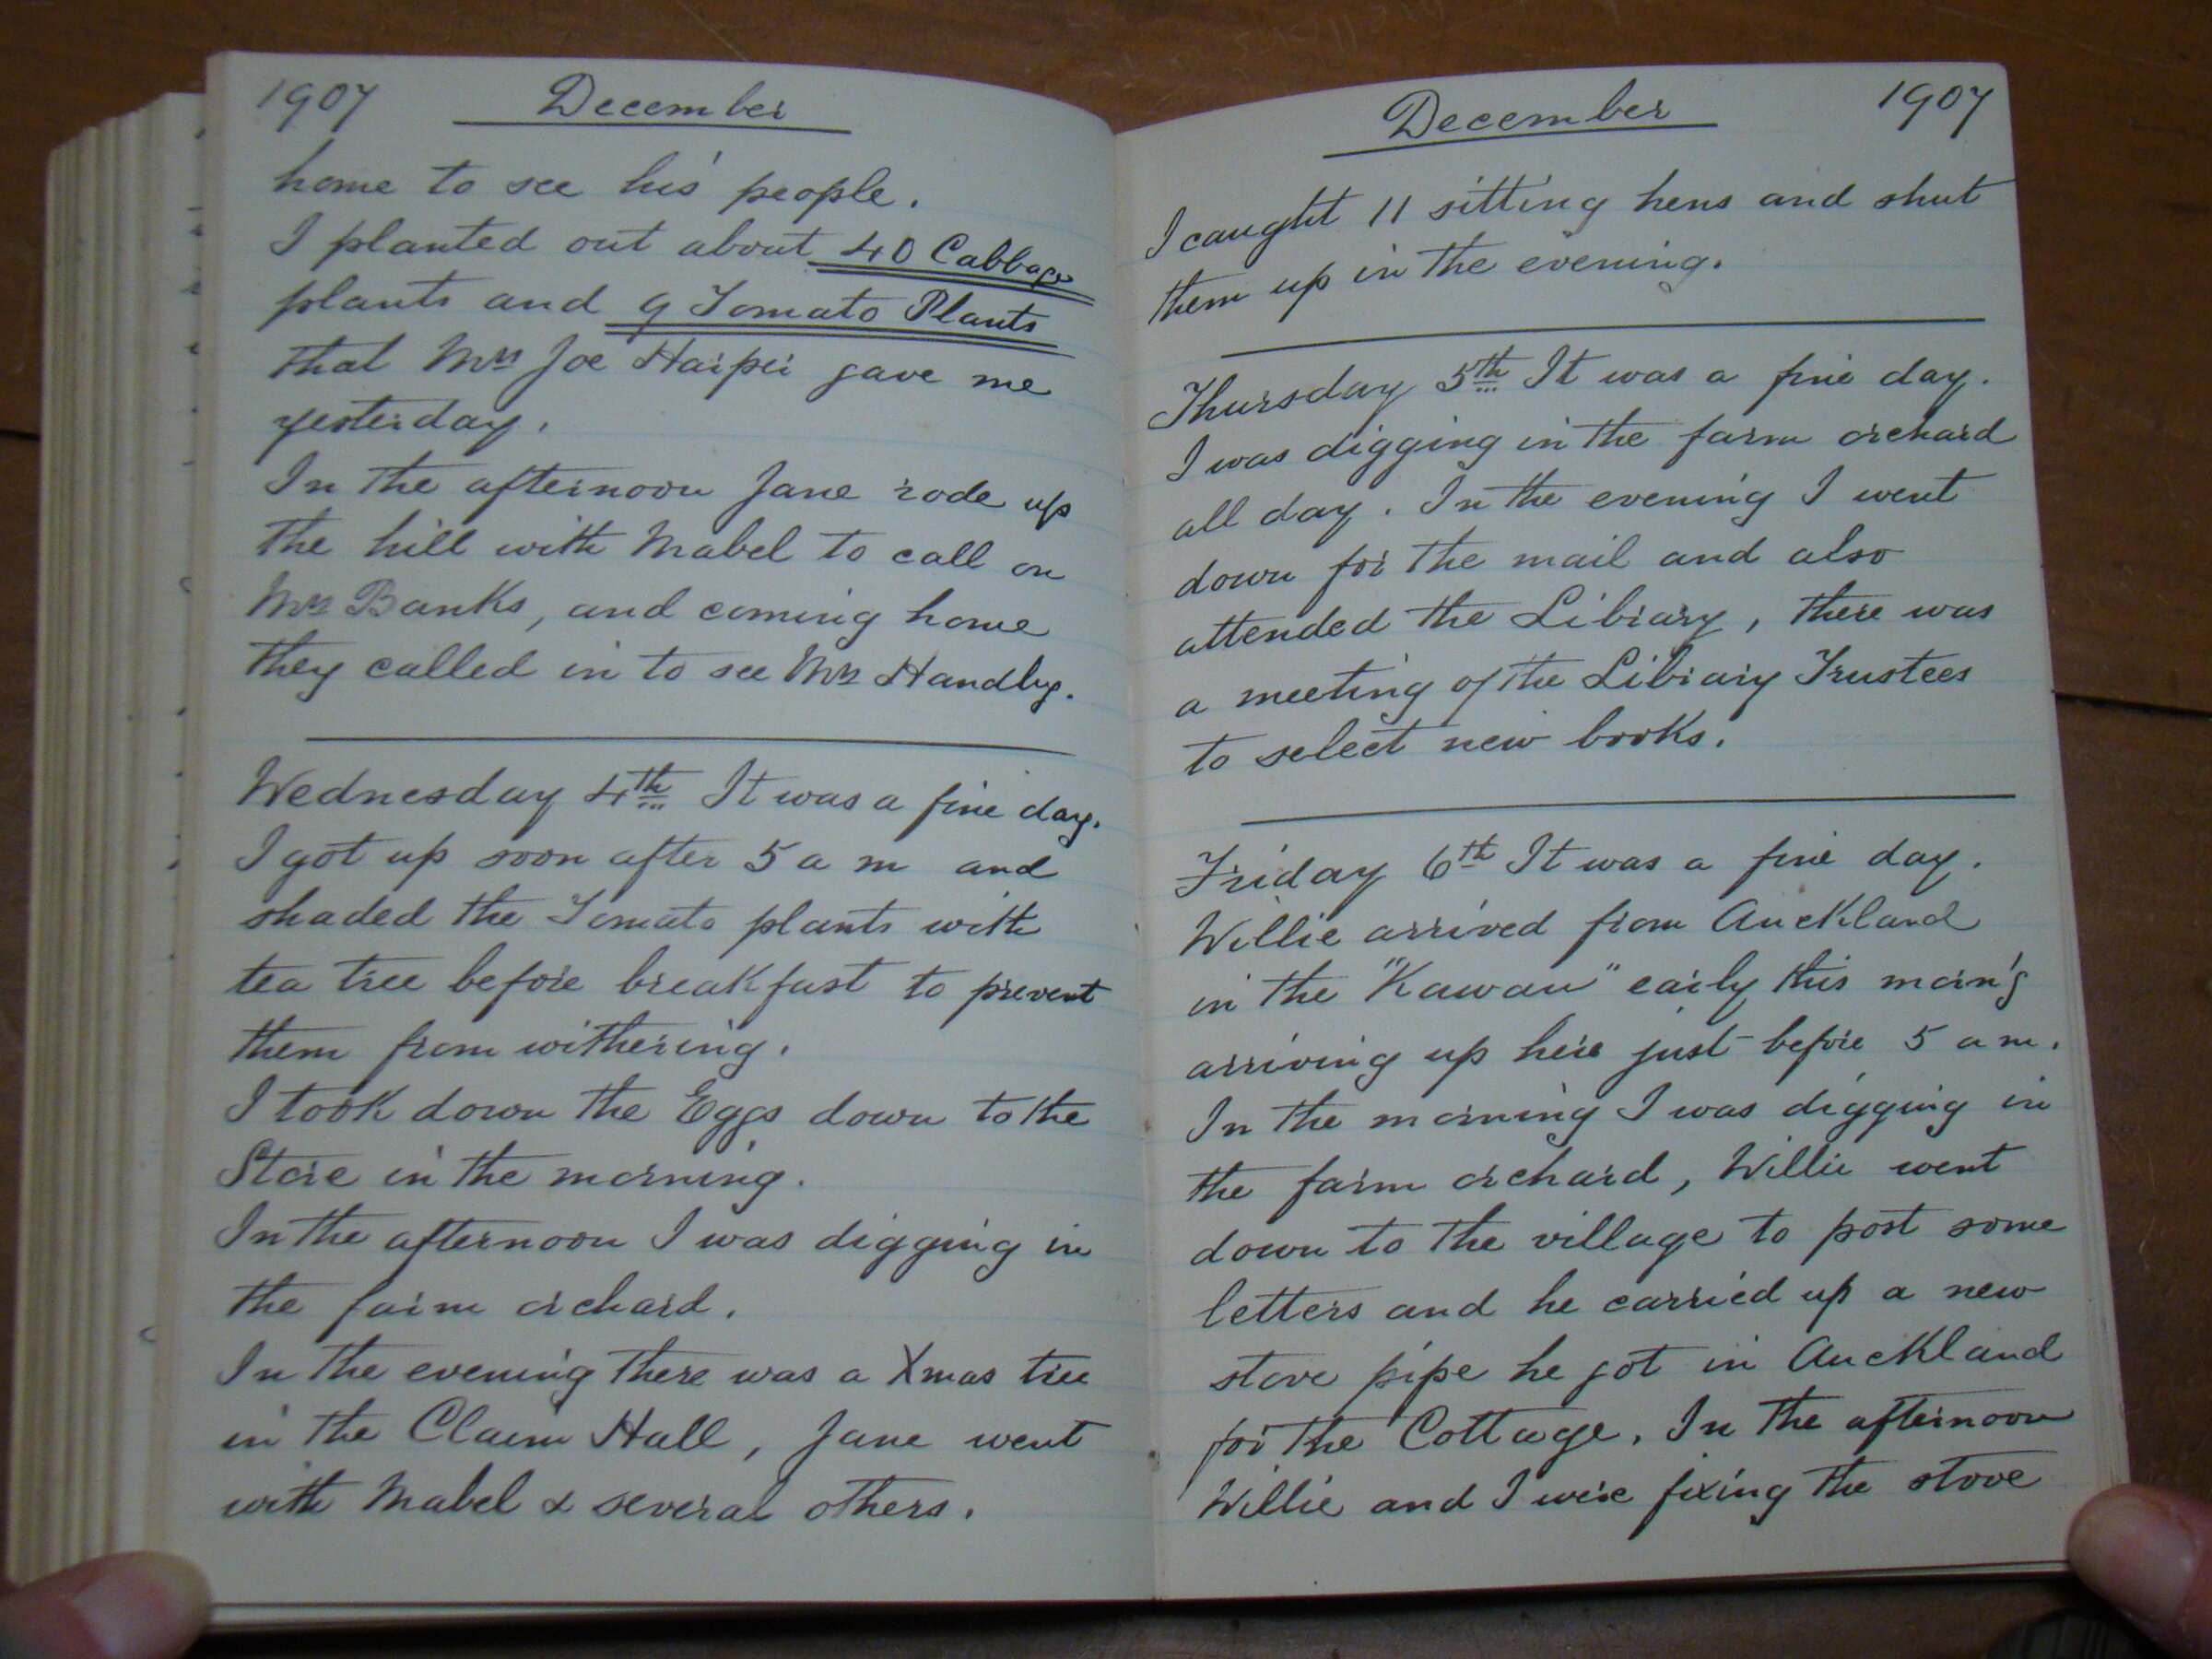 1907 December
home to see his people.
I planted out about 40 Cabbage
plants and 9 Tomato Plants
that Mrs Joe Harper gave me
yesterday.
In the afternoon Jane rode up
the hill with Mabel to call on
Mrs Banks, and coming home
they called in to see Mrs Handley.
Wednesday 4th It was a fine day.
I got up soon after 5 a m and
shaded the Tomato plants with
tea tree before breakfast to prevent
them from withering.
I took down the Eggs down to the
Store in the morning.
In the afternoon I was digging in
the farm orchard.
In the evening there was a Xmas tree
in the Claim Hall, Jane went
with Mabel & several others.
December 1907
I caught 11 sitting hens and shut
them up in the evening.
Thursday 5th It was a fine day.
I was digging in the farm orchard
all day. In the evening I went
down for the mail and also
attended the Library, there was
a meeting of the Library Trustees
to select new books.
Friday 6th It was a fine day.
Willie arrived from Auckland
in the "Kawau" early this morn'g
arriving up here just before 5 a m.
In the morning I was digging in
the farm orchard, Willie went
down to the village to post some
letters and he carried up a new
stove pipe he got in Auckland
for the Cottage. In the afternoon
Willie and I were fixing the stove